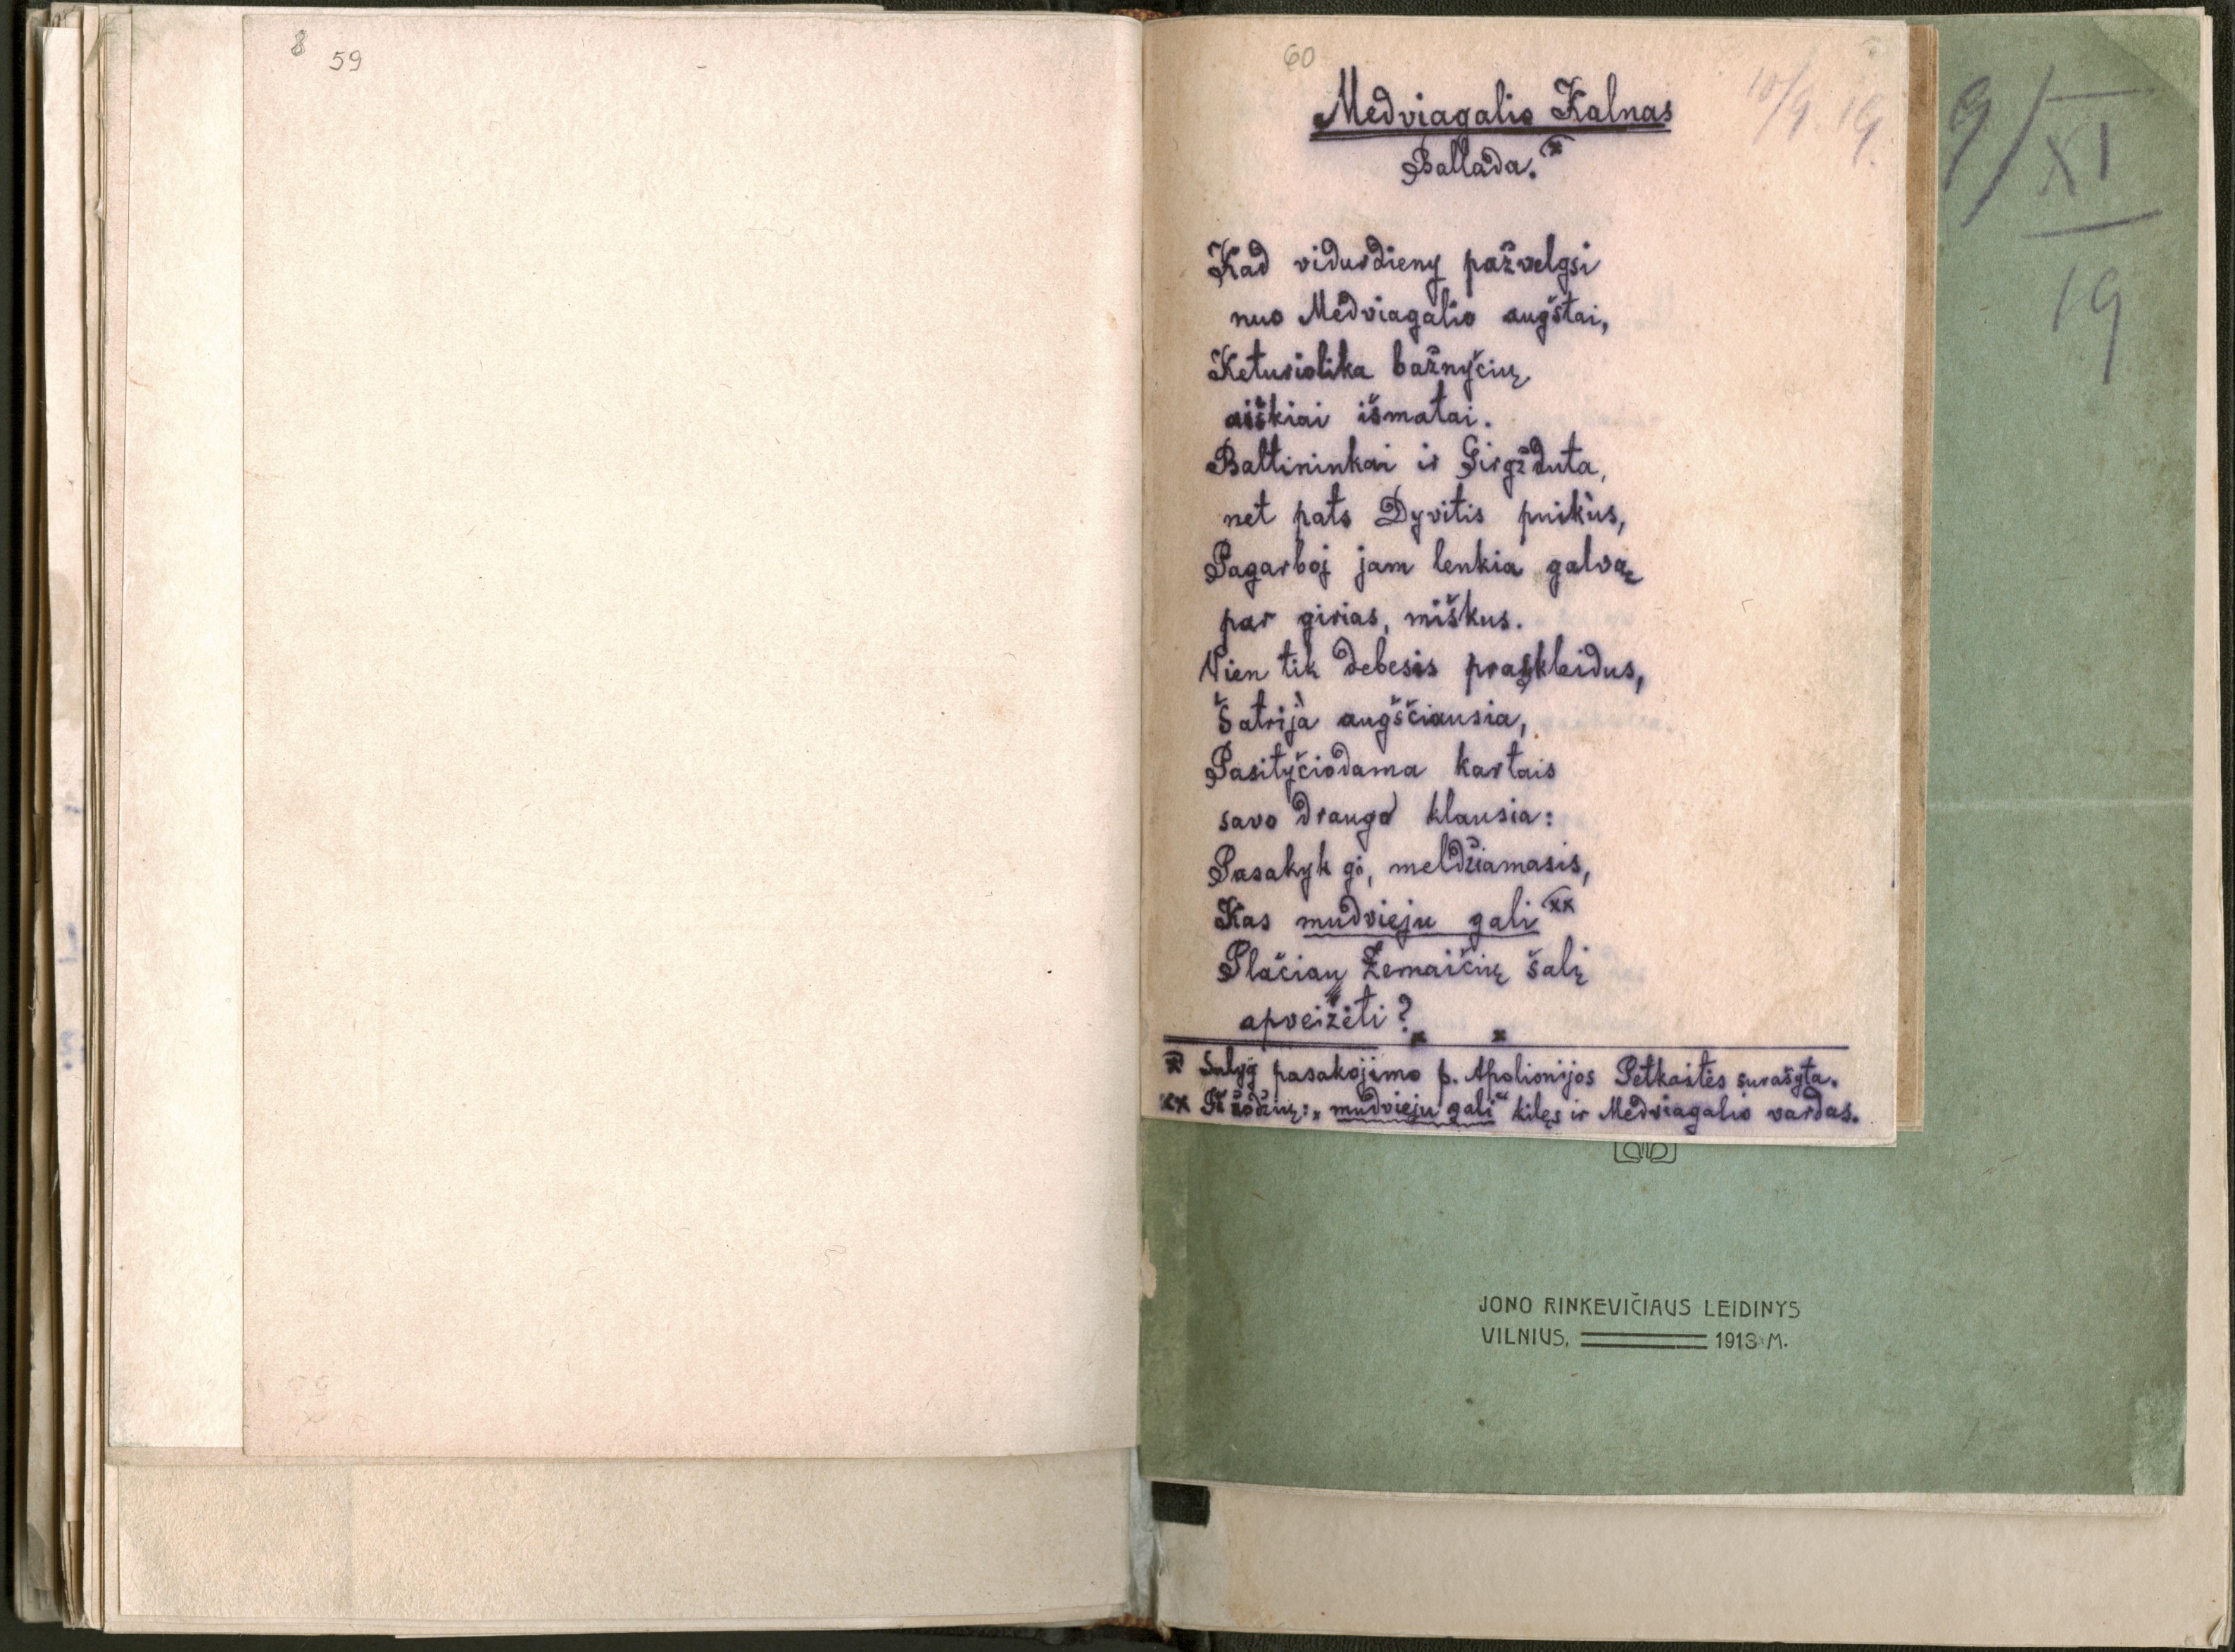 8 59
60
10/9.19.
9/XI 19
Medviagalio Kalnas
Ballada. x
Kad vidurdienį pažvelgsi
nuo Medviagalio augštai,
Keturiolika bažnyčių
aiškiai išmatai.
Baltininkai ir Girgžduta,
net pats Dyvitis puikùs,
Pagarboj jam lenkia galvą
par girias, miškus.
Vien tik debesis praskleidus,
Šatrijà augščiausia,
Pasityčiodama kartais
savo draugo klausia:
Pasakyk gi, meldžiamasis,
Kas mudvieju gali xx
Plačiau Žemaičių šalį
apveizėti?
x x
x Sulyg pasakojimo p. Apolionijos Petkaitės surašyta.
xx Iš žodžių: „mudvieju gali“ kilęs ir Medviagalio vardas.
JONO RINKEVIČIAUS LEIDINYS
VILNIUS, 1913 M.